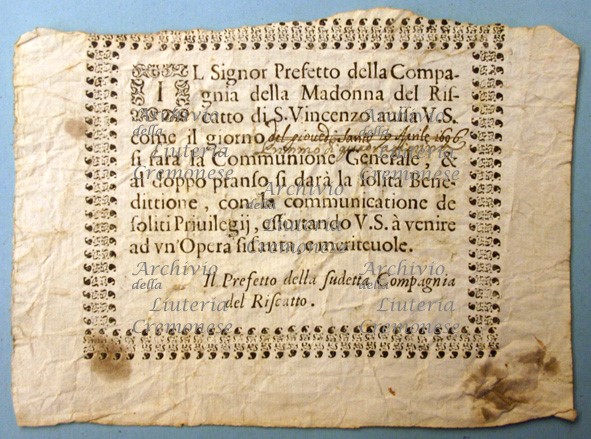 IL Signor Prefetto della Compa-
gnia della Madonna del Ris-
catto di S. Vincenzo auisa V.S.
come il giorno del giouedi santo Aprile
si farà la Communione Generale, &
al doppo pranso si darà la solita Bene-
dittione, con la communicatione de
soliti Priuilegij, essortando V.S. à venire
ad vn'Opera si santa, e meriteuole.
Il Prefetto della sudetta Compagnia
del Riscatto.
Archivio
della
Liuteria
Cremonese
Archivio
della
Liuteria
Cremonese
Archivio
della
Liuteria
Cremonese
Archivio
della
Liuteria
Cremonese
Archivio
della
Liuteria
Cremonese